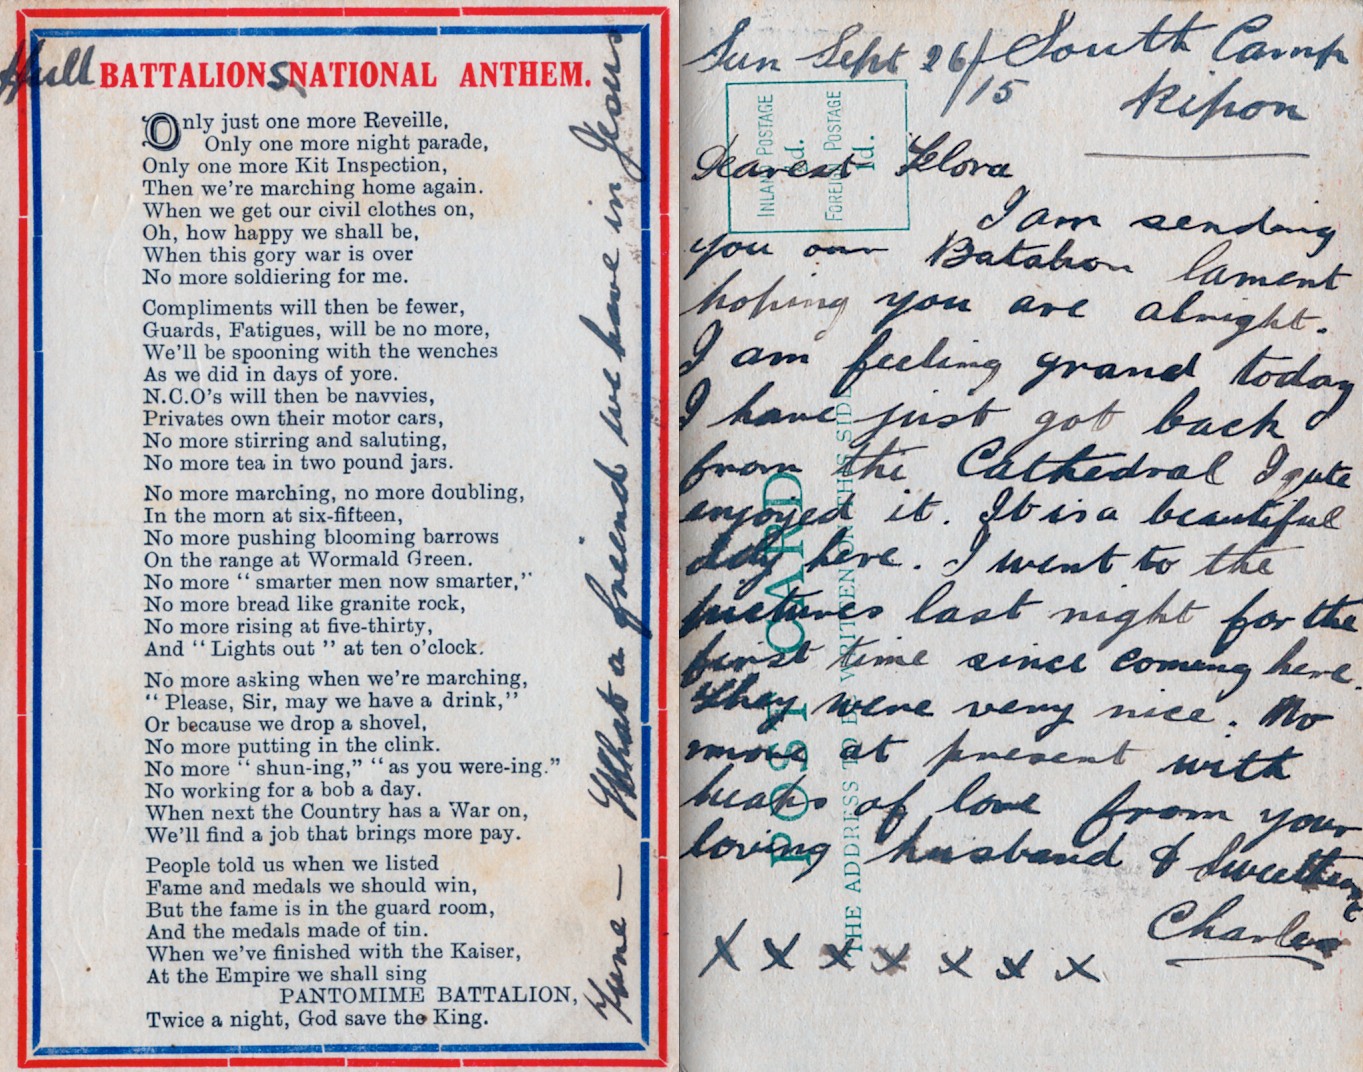 Hull BATTALIONS NATIONAL ANTHEM.
Only just one more Reveille,
Only one more night parade,
Only one more Kit Inspection,
Then we're marching home again.
When we get our civil clothes on,
Oh, how happy we shall be,
When this gory war is over
No more soldiering for me.
Compliments will then be fewer,
Guards, Fatigues, will be no more,
We'll be spooning with the wenches
As we did in days of yore.
N.C.O's will then be navvies,
Privates own their motor cars,
No more stirring and saluting,
No more tea in two pound jars.
No more marching, no more doubling,
In the morn at six-fifteen,
No more pushing blooming barrows
On the range at Wormald Green.
No more "smarter men now smarter,"
No more bread like granite rock,
No more rising at five-thirty,
And "Lights out" at ten o'clock.
No more asking when we're marching,
"Please, Sir, may we have a drink,"
Or because we drop a shovel,
No more putting in the clink.
No more "shun-ing," "as you were-ing."
No working for a bob a day.
When next the Country has a War on,
We'll find a job that brings more pay.
People told us when we listed
Fame and medals we should win,
But the fame is in the guard room,
And the medals made of tin.
When we've finished with the Kaiser,
At the Empire we shall sing
PANTOMIME BATTALION,
Twice a night, God save the King.
Tune — What a friend we have in Jesus
Sun Sept 26/15 South Camp
Ripon
Dearest Flora
I am sending
you our Batalion lament
hoping you are alright.
I am feeling grand today
I have just got back
from the Cathedral I quite
enjoyed it. It is a beautiful
day here. I went to the
pictures last night for the
first time since coming here.
They were very nice. No
more at present with
heaps of love from your
loving husband & Sweetheart
Charles
X X X X X X X
INLAND POSTAGE
½d.
FOREIGN POSTAGE
1d.
POST CARD
THE ADDRESS TO BE WRITTEN ON THIS SIDE